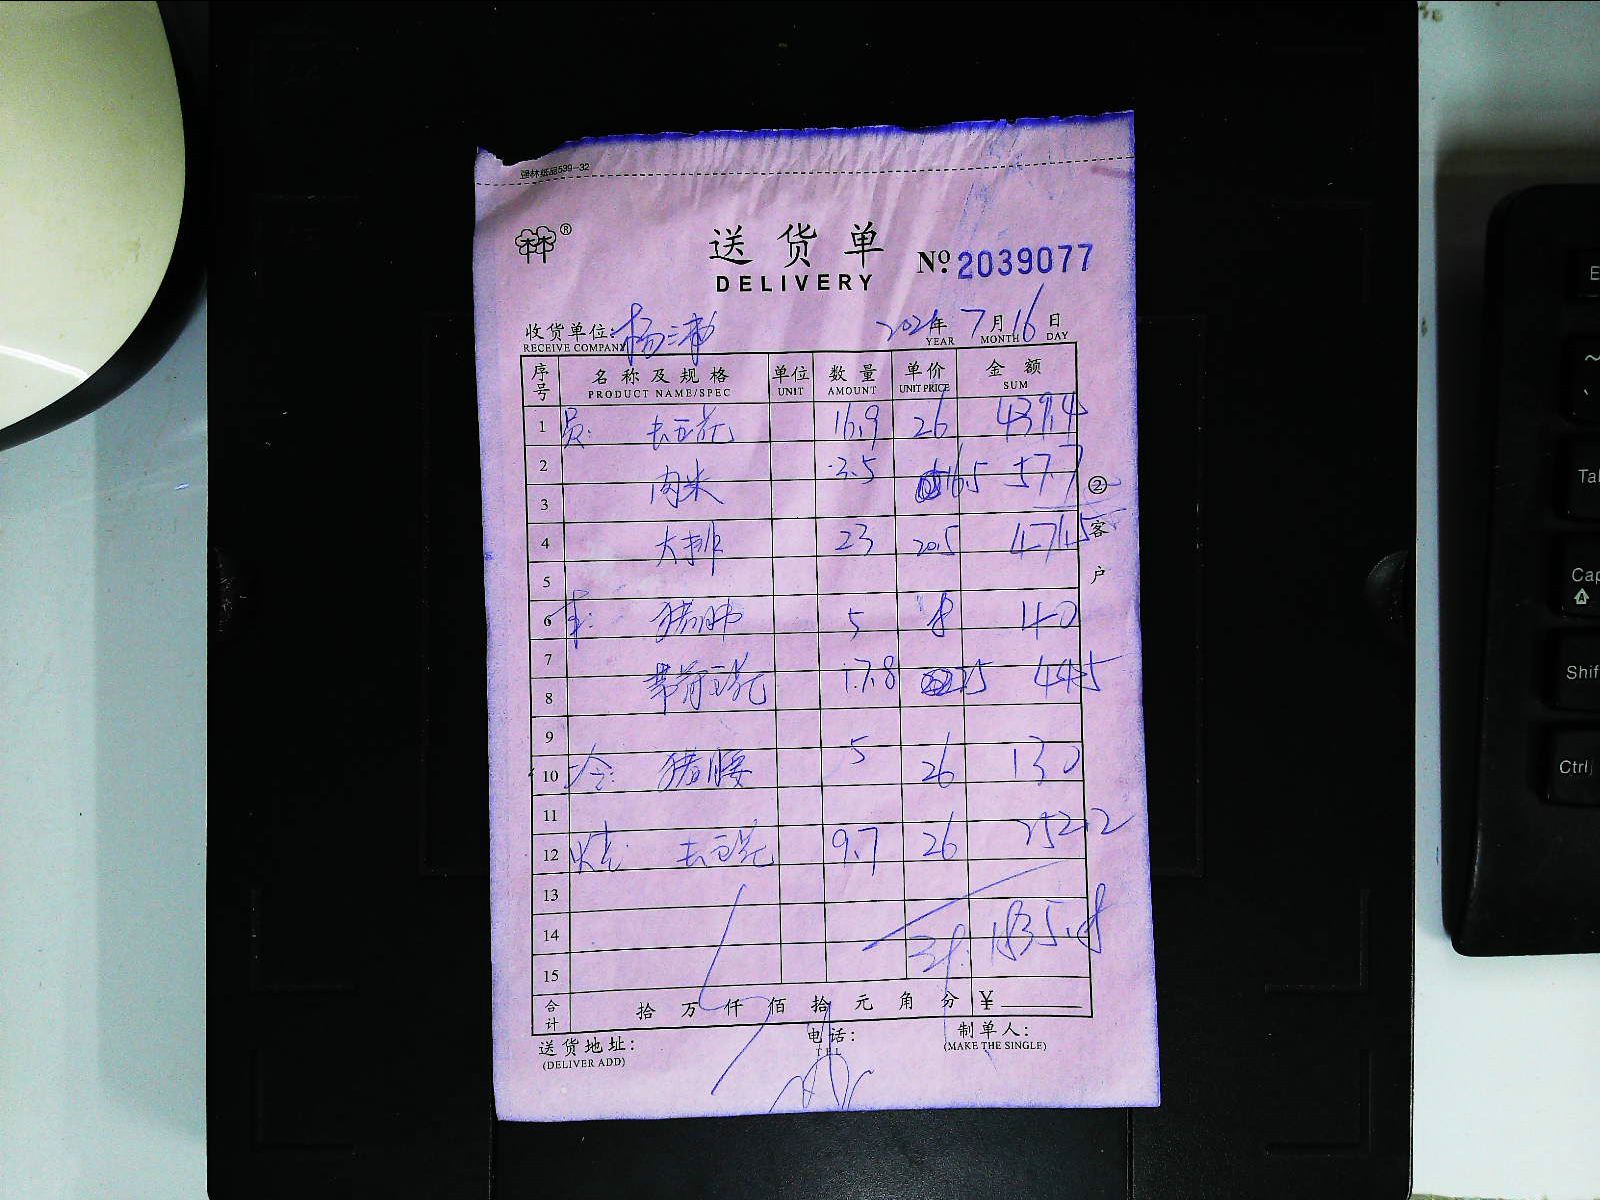 强林纸品539-32
林®
送货单 № 2039077
DELIVERY
收货单位: 杨三 2021年 7月 16日
RECEIVE COMPANY YEAR MONTH DAY
序号 名称及规格 单位 数量 单价 金额
PRODUCT NAME/SPEC UNIT AMOUNT UNIT PRICE SUM
1 员: 去五花 16.9 26 439.4
2 肉米 3.5 16.5 57.7
3
4 大排 23 20.5 471.5
5
6 猪肺 5 8 40
7
8 带前五花 17.8 25 445
9
10 冷: 猪腰 5 26 130
11
12 烧: 去五花 9.7 26 252.2
13
14 计: 1835.8
15
合计 拾 万 仟 佰 拾 元 角 分 ¥
②客户
送货地址: 电话: 制单人:
(DELIVER ADD) TEL (MAKE THE SINGLE)
Tab
Cap
Shif
Ctrl